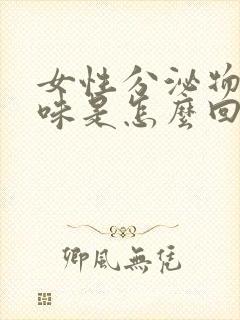 女性分泌物
味是怎麼回
卿風無凭